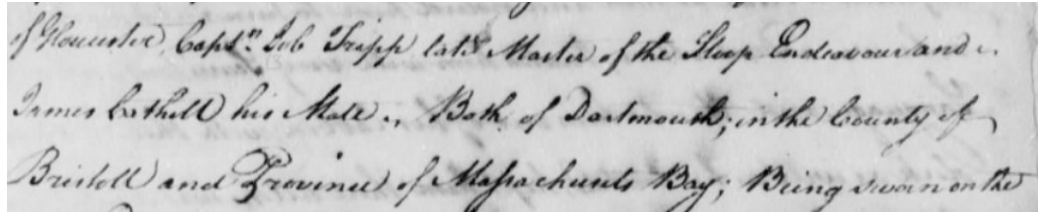 of Gloucester, Captn. Job Tripp late Master of the Sloop Endeavour and
James Cathell his Mate, Both of Dartmouth; in the County of
Bristoll and Province of Massachusets Bay; Being sworn on the